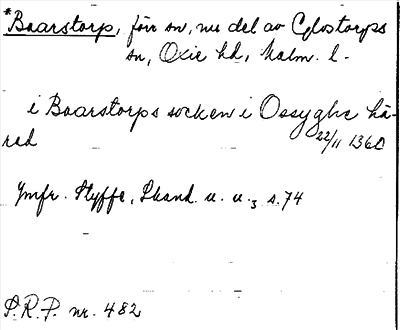 *Boarstorp, förr sn, nu del av Glostorps
sn, Oxie hd, Malm. l.
i Boarstorps socken i Ossyghe hä-
rad 22/11 1360
Jmfr. Styffe, Skand. u. u.3 s. 74
S.R.P. nr. 482